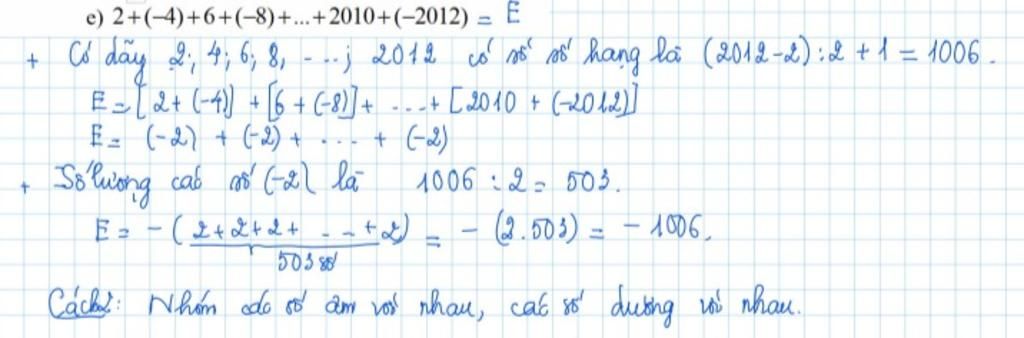 e) 2+(−4)+6+(−8)+...+2010+(−2012) = E
+ Có dãy 2; 4; 6; 8, ...; 2012 có số số hạng là (2012-2):2 + 1 = 1006.
E = [2+(-4)] + [6+(-8)] + ....+ [2010 + (-2012)]
E = (-2) + (-2) + .... + (-2)
+ Số lượng các số (-2) là 1006 : 2 = 503.
E = - (2+2+2+ ....+2) = - (2.503) = - 1006.
503 số
Cách2: Nhóm các số âm với nhau, các số dương với nhau.